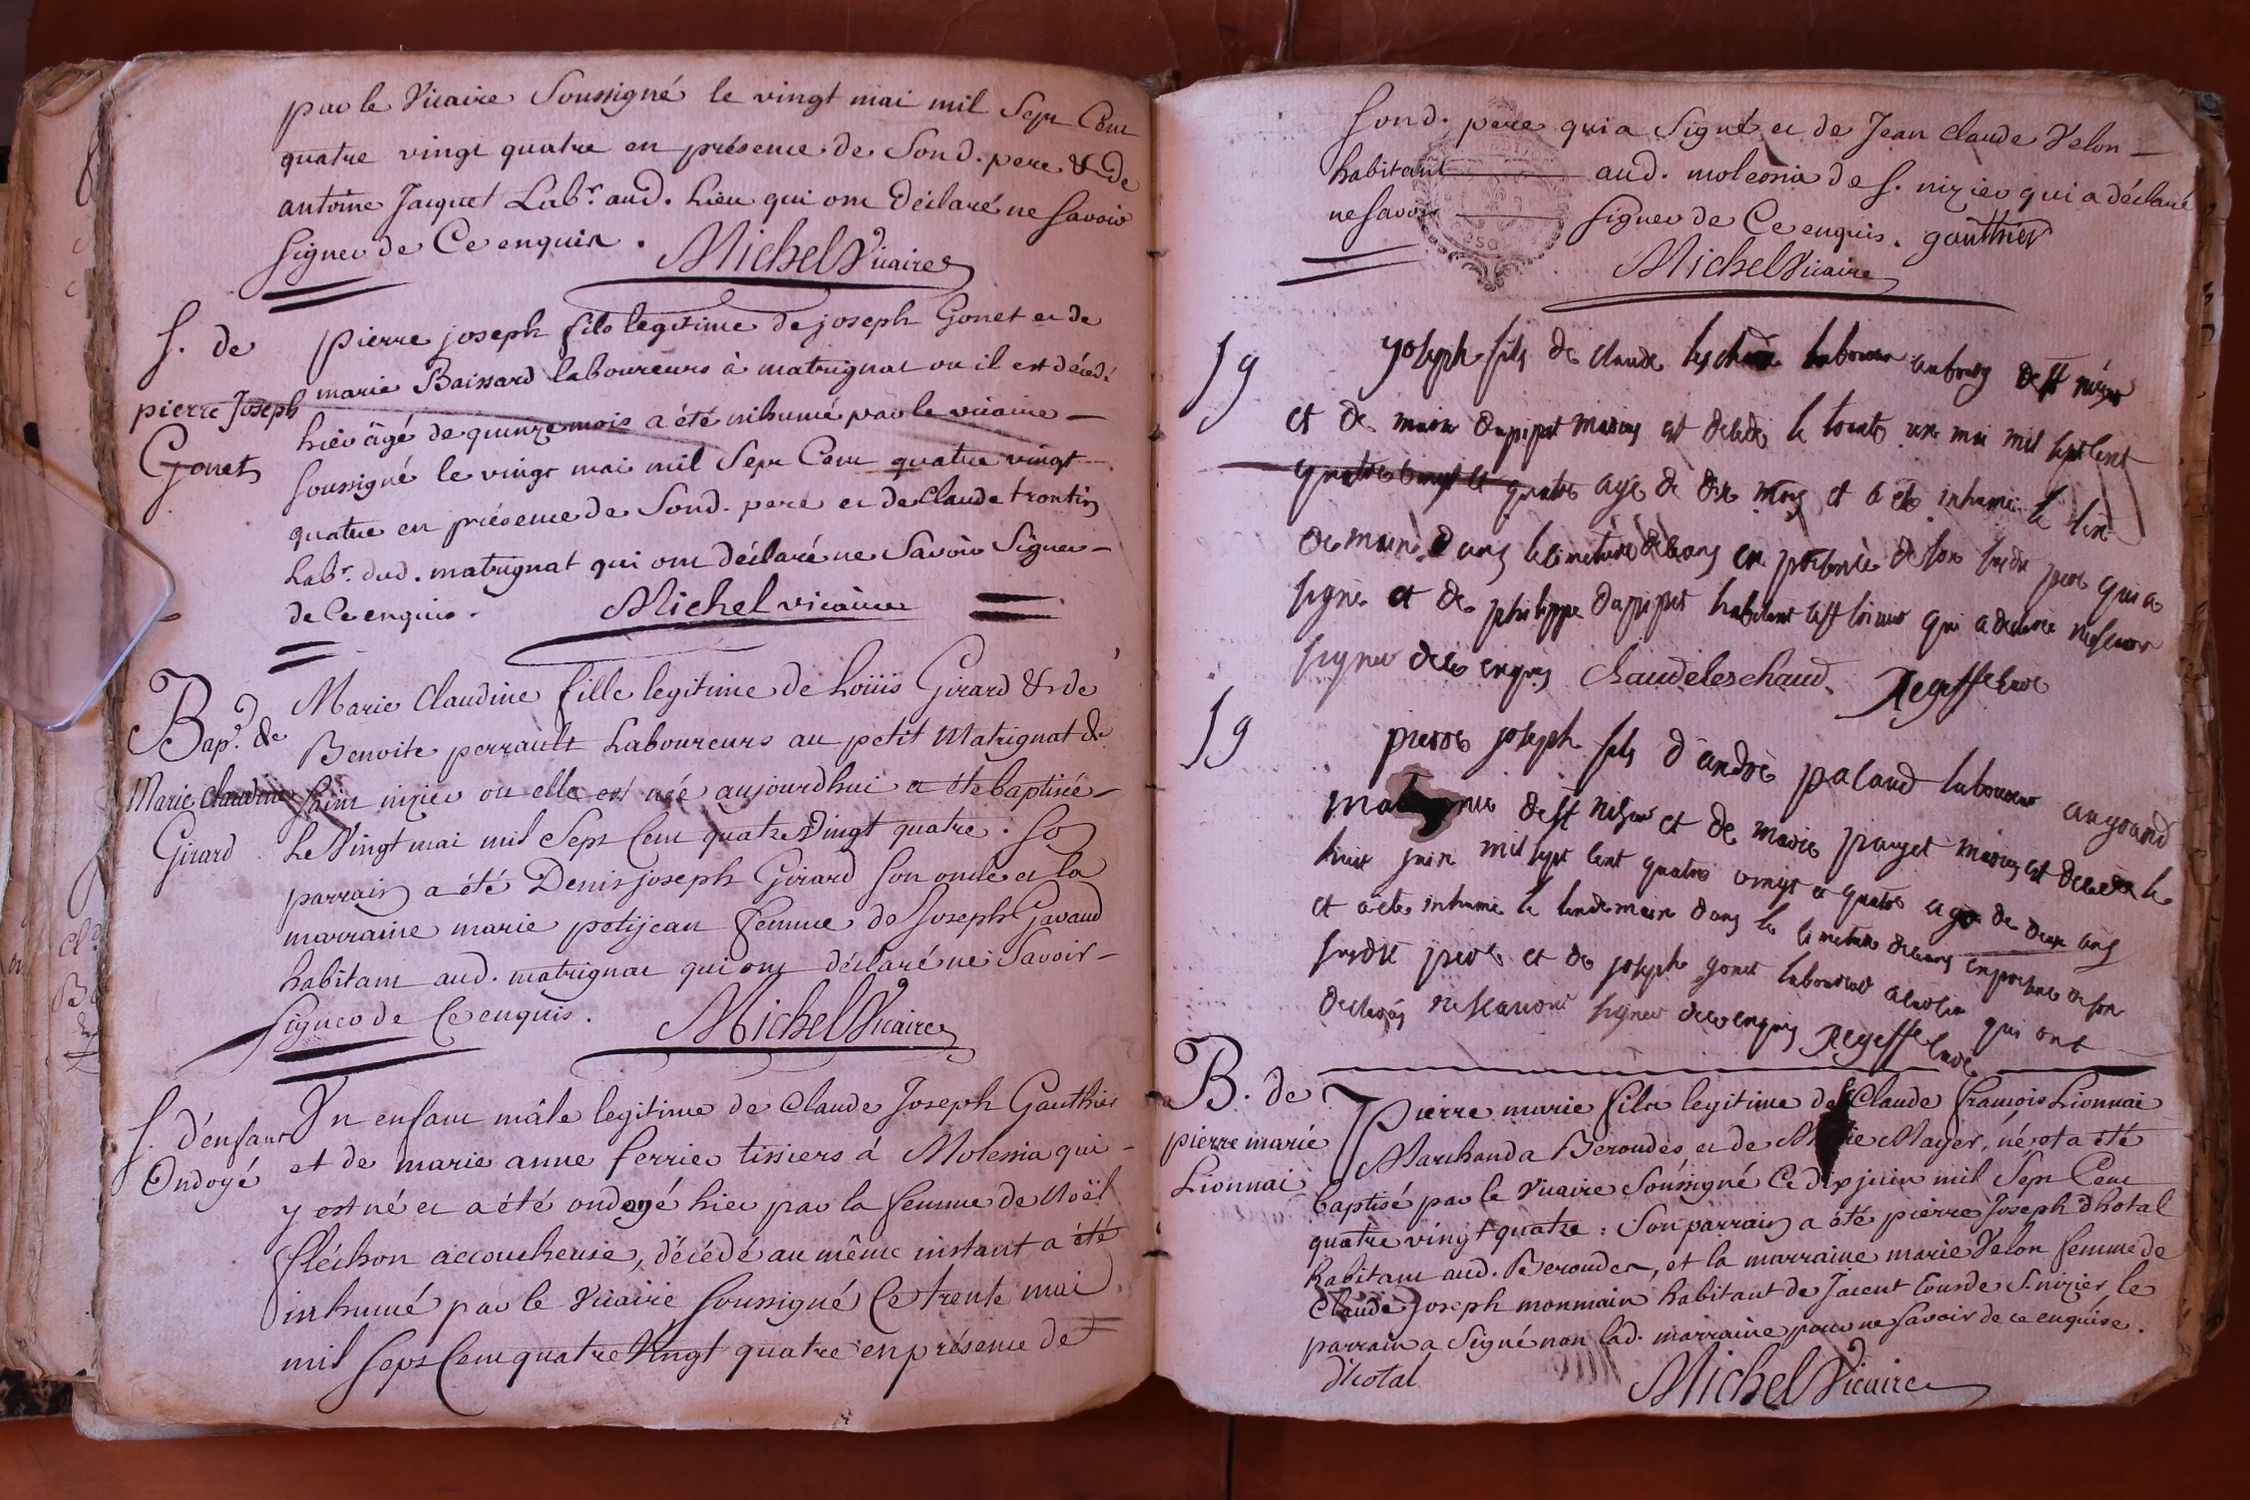 par le Vicaire Soussigné le vingt mai mil Sept Cent
quatre vingt quatre en présence de Sond. pere & de
antoine Jacquet Labr. aud. Lieu qui ont déclaré ne Savoir
Signer de Ce enquis.
Michel Vicaire
S. de
pierre Joseph
Gonet
Pierre joseph fils legitime de joseph Gonet et de
marie Baissard laboureurs à matrignat ou il est décedé
hier âgé de quinze mois a été inhumé par le vicaire
soussigné le vingt mai mil Sept Cent quatre vingt
quatre en présence de Sond. pere et de Claude trontin
Labr. dud. matrignat qui ont déclaré ne Savoir Signer
de Ce enquis.
Michel vicaire
Bap. de
Marie Claudine
Girard
Marie Claudine fille legitime de Loüis Girard & de
Benoite perrault Laboureurs au petit Matrignat de
saint nizier ou elle est née aujourdhui a été baptisée
Le Vingt mai mil Sept Cent quatre Vingt quatre. So
parrain a été Denis joseph Girard son oncle et la
marraine marie petijean femme de Joseph Gavaud
habitant aud. matrignat qui ont déclaré ne Savoir
Signer de Ce enquis.
Michel Vicaire
S. d'enfant
Ondoyé
Un enfant mâle legitime de Claude Joseph Gauthier
et de marie anne ferrier tissiers à Molessia qui
y est né et a été ondoyé hier par la femme de Noël
fléchon accoucheuse, décédé au même instant a été
inhumé par le Vicaire soussigné Ce trente mai
mil Sept Cent quatre Vingt quatre en présence de
Sond. pere qui a Signé et de Jean Claude Velon
habitant aud. molessia de S. nizier qui a déclaré
ne savoir signer de Ce enquis. gauthier
Michel Vicaire
Joseph fils de claude leschaud laboureur au bourg de St nizier
et de marie dupipet maries est decede le trente un mai mil sept cent
quatre vingt et quatre age de dix mois et a ete inhume le len
demain dans le cimetiere de ceans en presence de son susdit pere qui a
signe et de philippe dupipet habitant qui a declare ne scavoir
signer de ce enquis Claude leschaud.
pierre joseph fils d'andré palaud laboureur au grand
de St Nizier et de marie pauget maries est decede le
huit juin mil sept cent quatre vingt et quatre age de deux ans
et a ete inhume le lendemain dans le cimetiere de ceans en presence de son
susdit pere et de joseph gonet laboureur qui ont
declarés ne scavoir signer de ce enquis
B. de
pierre marie
Lionnai
Pierre marie fils legitime de Claude françois Lionnai
Marchand a Beroudes et de Marie Mayer, né et a été
baptisé par le Vicaire Soussigné Ce dix juin mil Sept Cent
quatre vingt quatre : Son parrain a été pierre Joseph Dhotal
habitant aud. Beroudes, et la marraine marie Velon femme de
Claude Joseph monmain habitant de S. nizier, le
parrain a Signé non lad. marraine pour ne Savoir de ce enquise.
d'hotal
Michel Vicaire